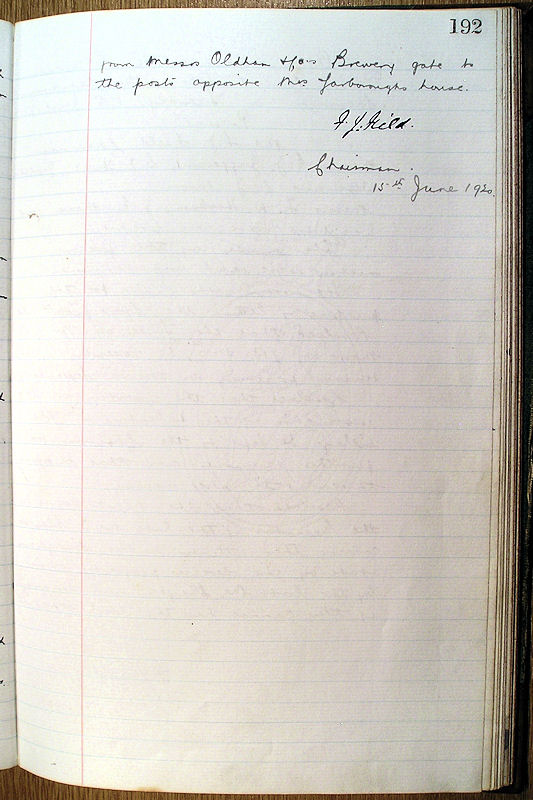 192
from Messrs Oldham & Co's Brewery gate to
the posts opposite Mrs Yarboroughs house.
Chairman.
15th June 1920.